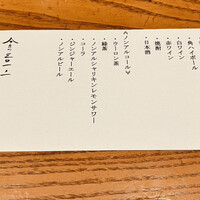 ・角ハイボール
・白ワイン
・赤ワイン
・焼酎
・日本酒
《ノンアルコール》
・ウーロン茶
・緑茶
・ノンアルシャリキンレモンサワー
・コーラ
・ジンジャーエール
・ノンアルビール